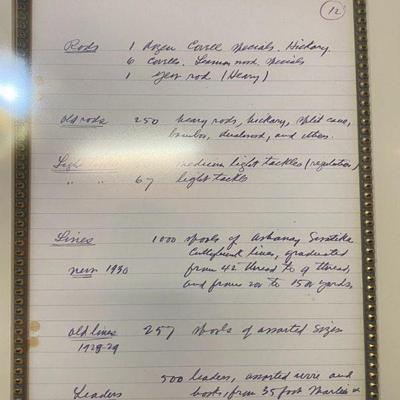 12
Rods 1 dozen Coxell Specials. Hickory
6 Coxells. Lemon wood. Specials
1 Spear rod (Heavy)
Old rods 250 heavy rods, hickory, split cane,
bamboo, and others.
Light medium light tackles (regulation)
" " 67 light tackle
Lines 1000 spools of Ashaway
Cuttyhunk lines, graduated
from 42 thread to 9 thread,
new 1930 and from 200 to 1500 yards.
Old lines 257 spools of assorted sizes
1928-29
Leaders 500 leaders, assorted wire and
from 35 foot Marlin